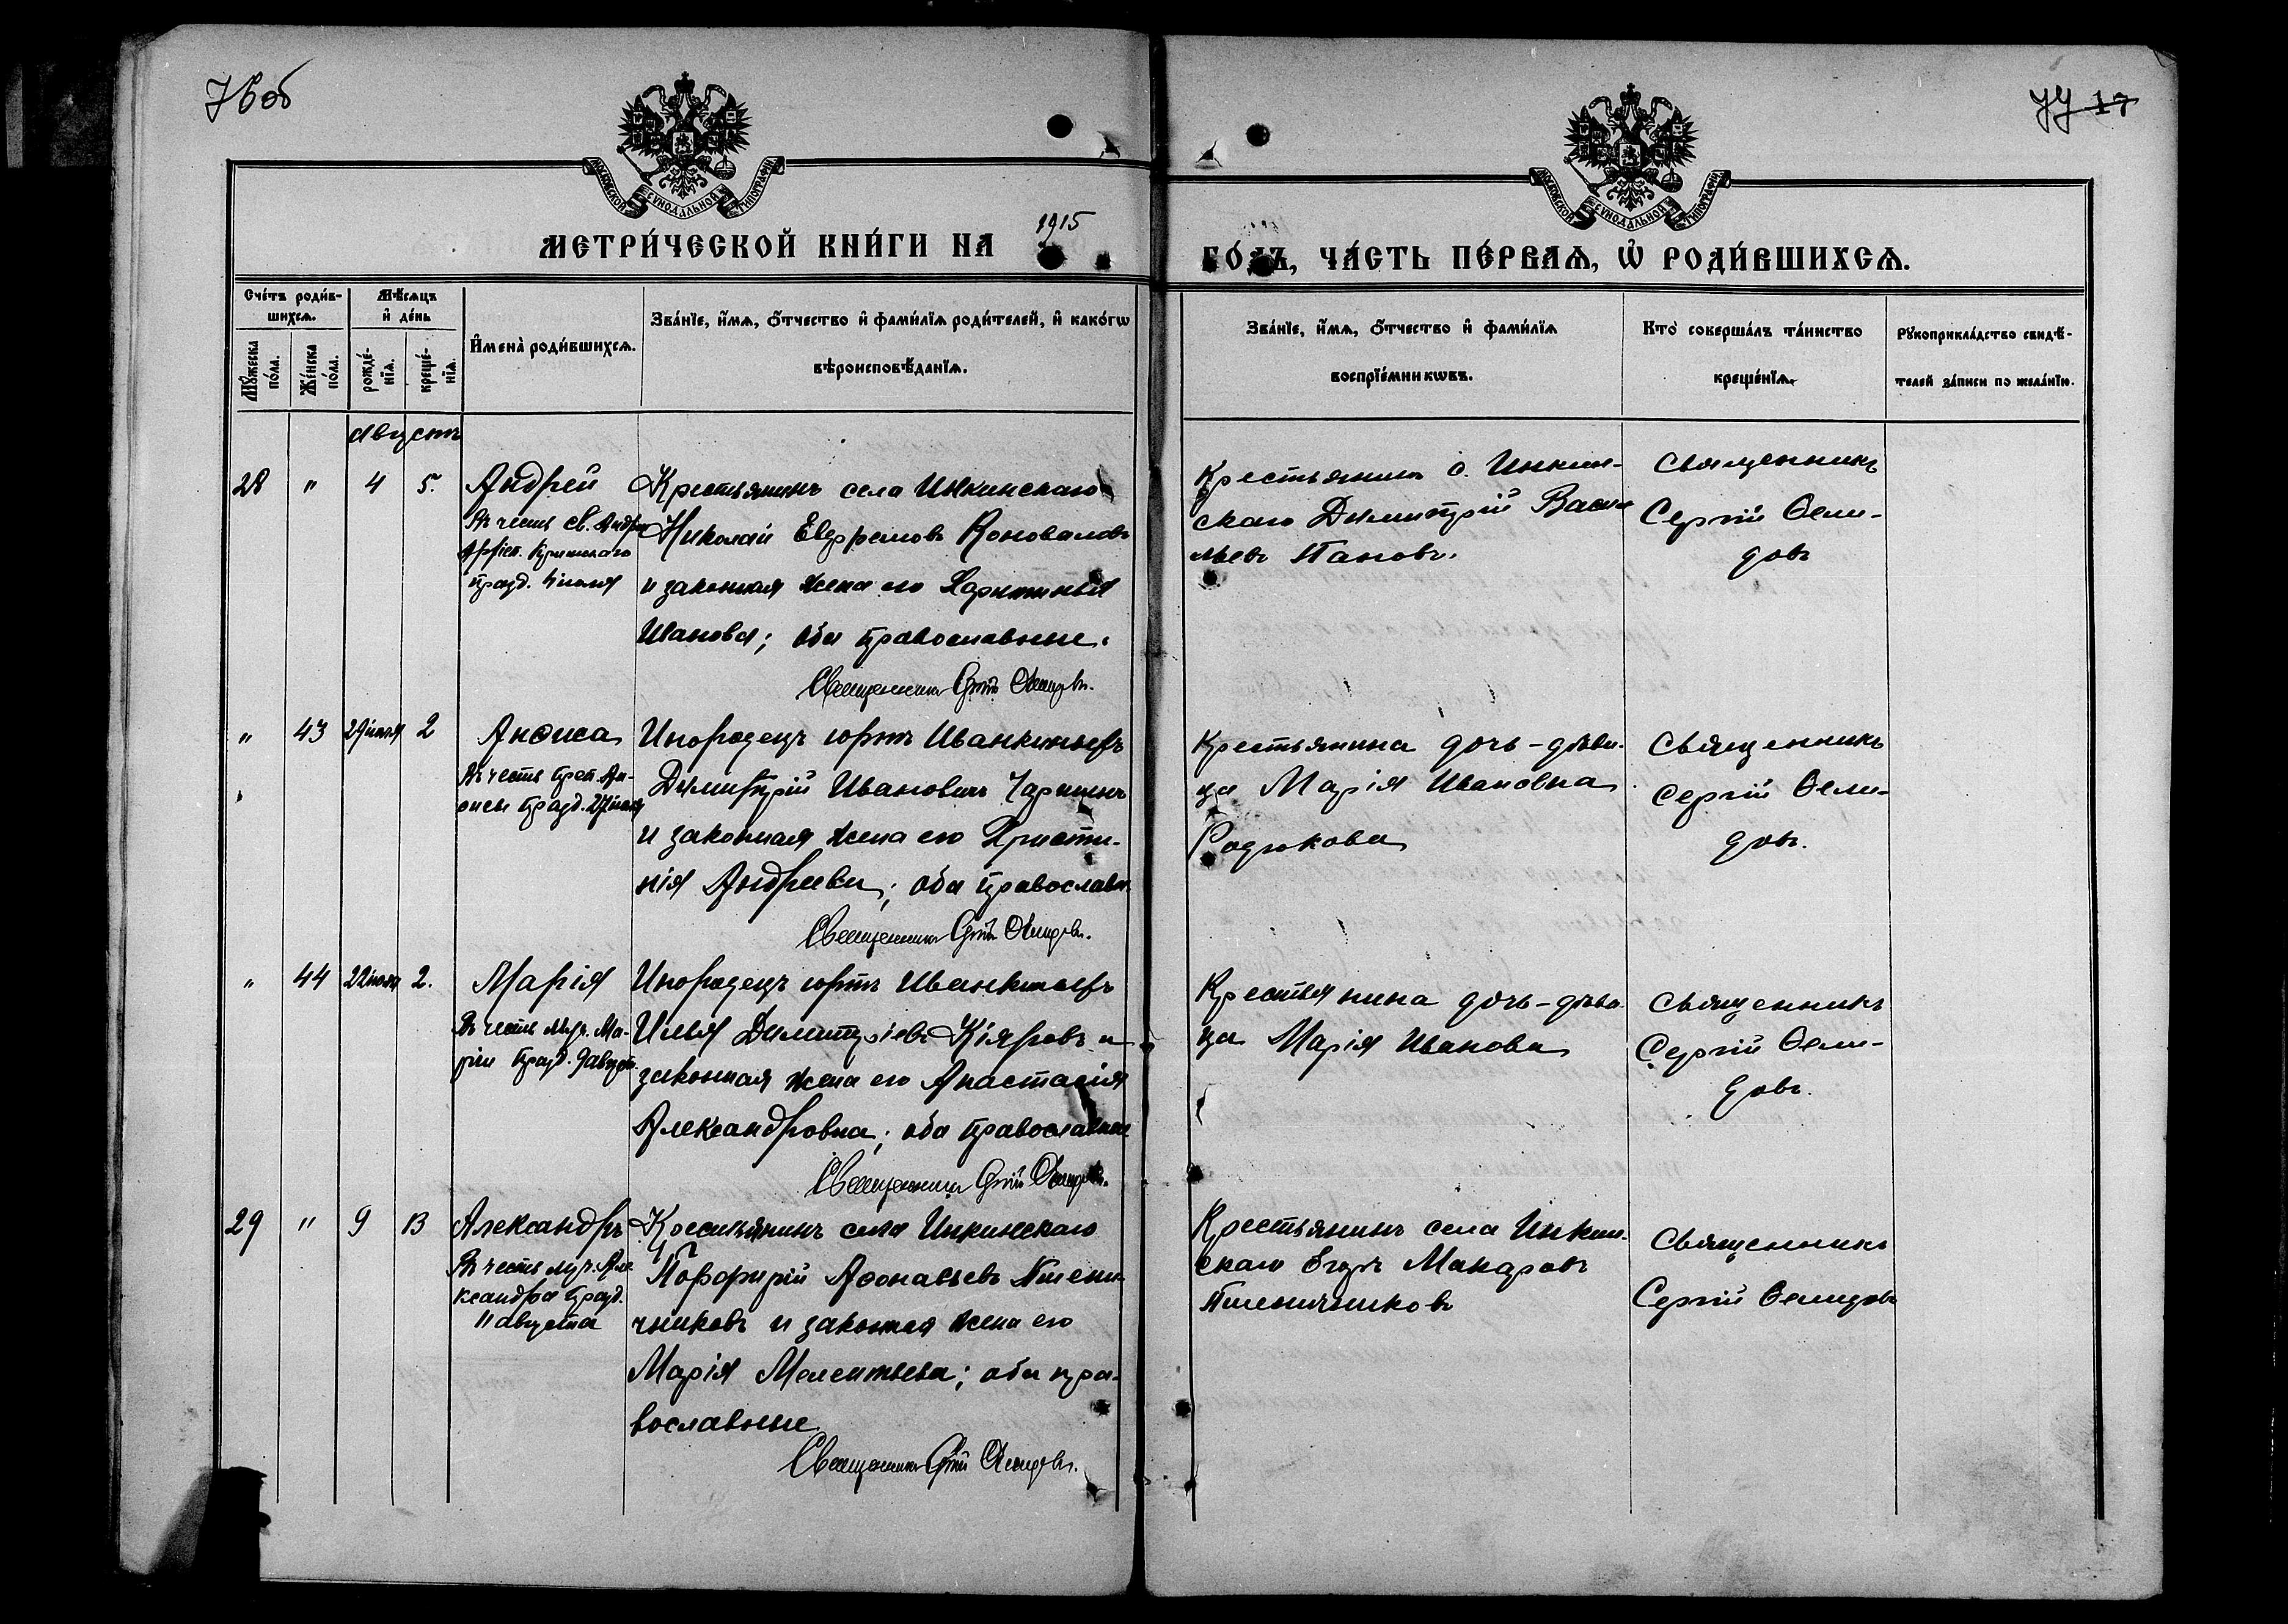 76 об
77 17
МОСКОВСКОЙ СѴНОДАЛЬНОЙ ТИПОГРАФІИ
МОСКОВСКОЙ СѴНОДАЛЬНОЙ ТИПОГРАФІИ
МЕТРИ́ЧЕСКОЙ КНИ́ГИ НА 1915
ГО́ДЪ, ЧА́СТЬ ПЕ́РВАѦ, Ѽ РОДИ́ВШИХСѦ.
Сче́тъ роди́в-
шихсѧ.
Мѣ́сѧцъ
и҆ де́нь
Мꙋ́жеска
по́ла.
Же́нска
по́ла.
рожде́-
нїѧ.
креще́-
нїѧ.
И҆мена̀ роди́вшихсѧ.
Зва́нїе, и҆́мѧ, ѻ҆́тчество и҆ фами́лїѧ роди́телей, и҆ како́гѡ
вѣроисповѣ́данїѧ.
Зва́нїе, и҆́мѧ, ѻ҆́тчество и҆ фами́лїѧ
воспрїе́мникѡвъ.
Кто̀ соверша́лъ та́инство
креще́нїѧ.
Рꙋкоприкла́дство свидѣ́-
телей за́писи по жела́нїю.
Августъ
28 " 4 5.
Андрей
Въ честь св. Андрея
Архіеп. Критскаго
празд. 4 іюля
Крестьянинъ села Инкинскаго
Николай Евфремовъ Коноваловъ
и законная жена его Харитинья
Иванова; оба православные.
Священникъ Сергій Ѳемидовъ.
Крестьянинъ с. Инкин-
скаго Димитрій Васи-
льевъ Пановъ.
Священникъ
Сергій Ѳеми-
довъ
" 43 29 іюля 2
Анѳиса
Въ честь преп. Ан-
ѳисы празд. 27 іюля
Инородецъ юртъ Иванкиныхъ
Димитрій Ивановичъ
и законная жена его Христи-
нія Андреева; оба православн.
Священникъ Сергій Ѳемидовъ.
Крестьянина дочь-дѣви-
ца Марія Ивановна
Родюкова
Священникъ
Сергій Ѳеми-
довъ.
" 44 22 іюля 2.
Марія
Въ честь мүр. Ма-
ріи празд. 9 август.
Инородецъ юртъ Иванкиныхъ
Илья Димитріевъ Кіяровъ и
законная жена его Анастасія
Александровна; оба православные
Священникъ Сергій Ѳемидовъ.
Крестьянина дочь-дѣви-
ца Марія Иванова
Священникъ
Сергій Ѳеми-
довъ.
29 " 9 13
Александръ
Въ честь муч. Але
ксандра празд.
11 августа
Крестьянинъ села Инкинскаго
Порфирій Аѳонасьевъ Пшени-
чниковъ и законная жена его
Марія Мелентьева; оба пра-
вославные
Священникъ Сергій Ѳемидовъ.
Крестьянинъ села Инкин-
скаго Егоръ Макаровъ
Пшеничниковъ
Священникъ
Сергій Ѳемидовъ